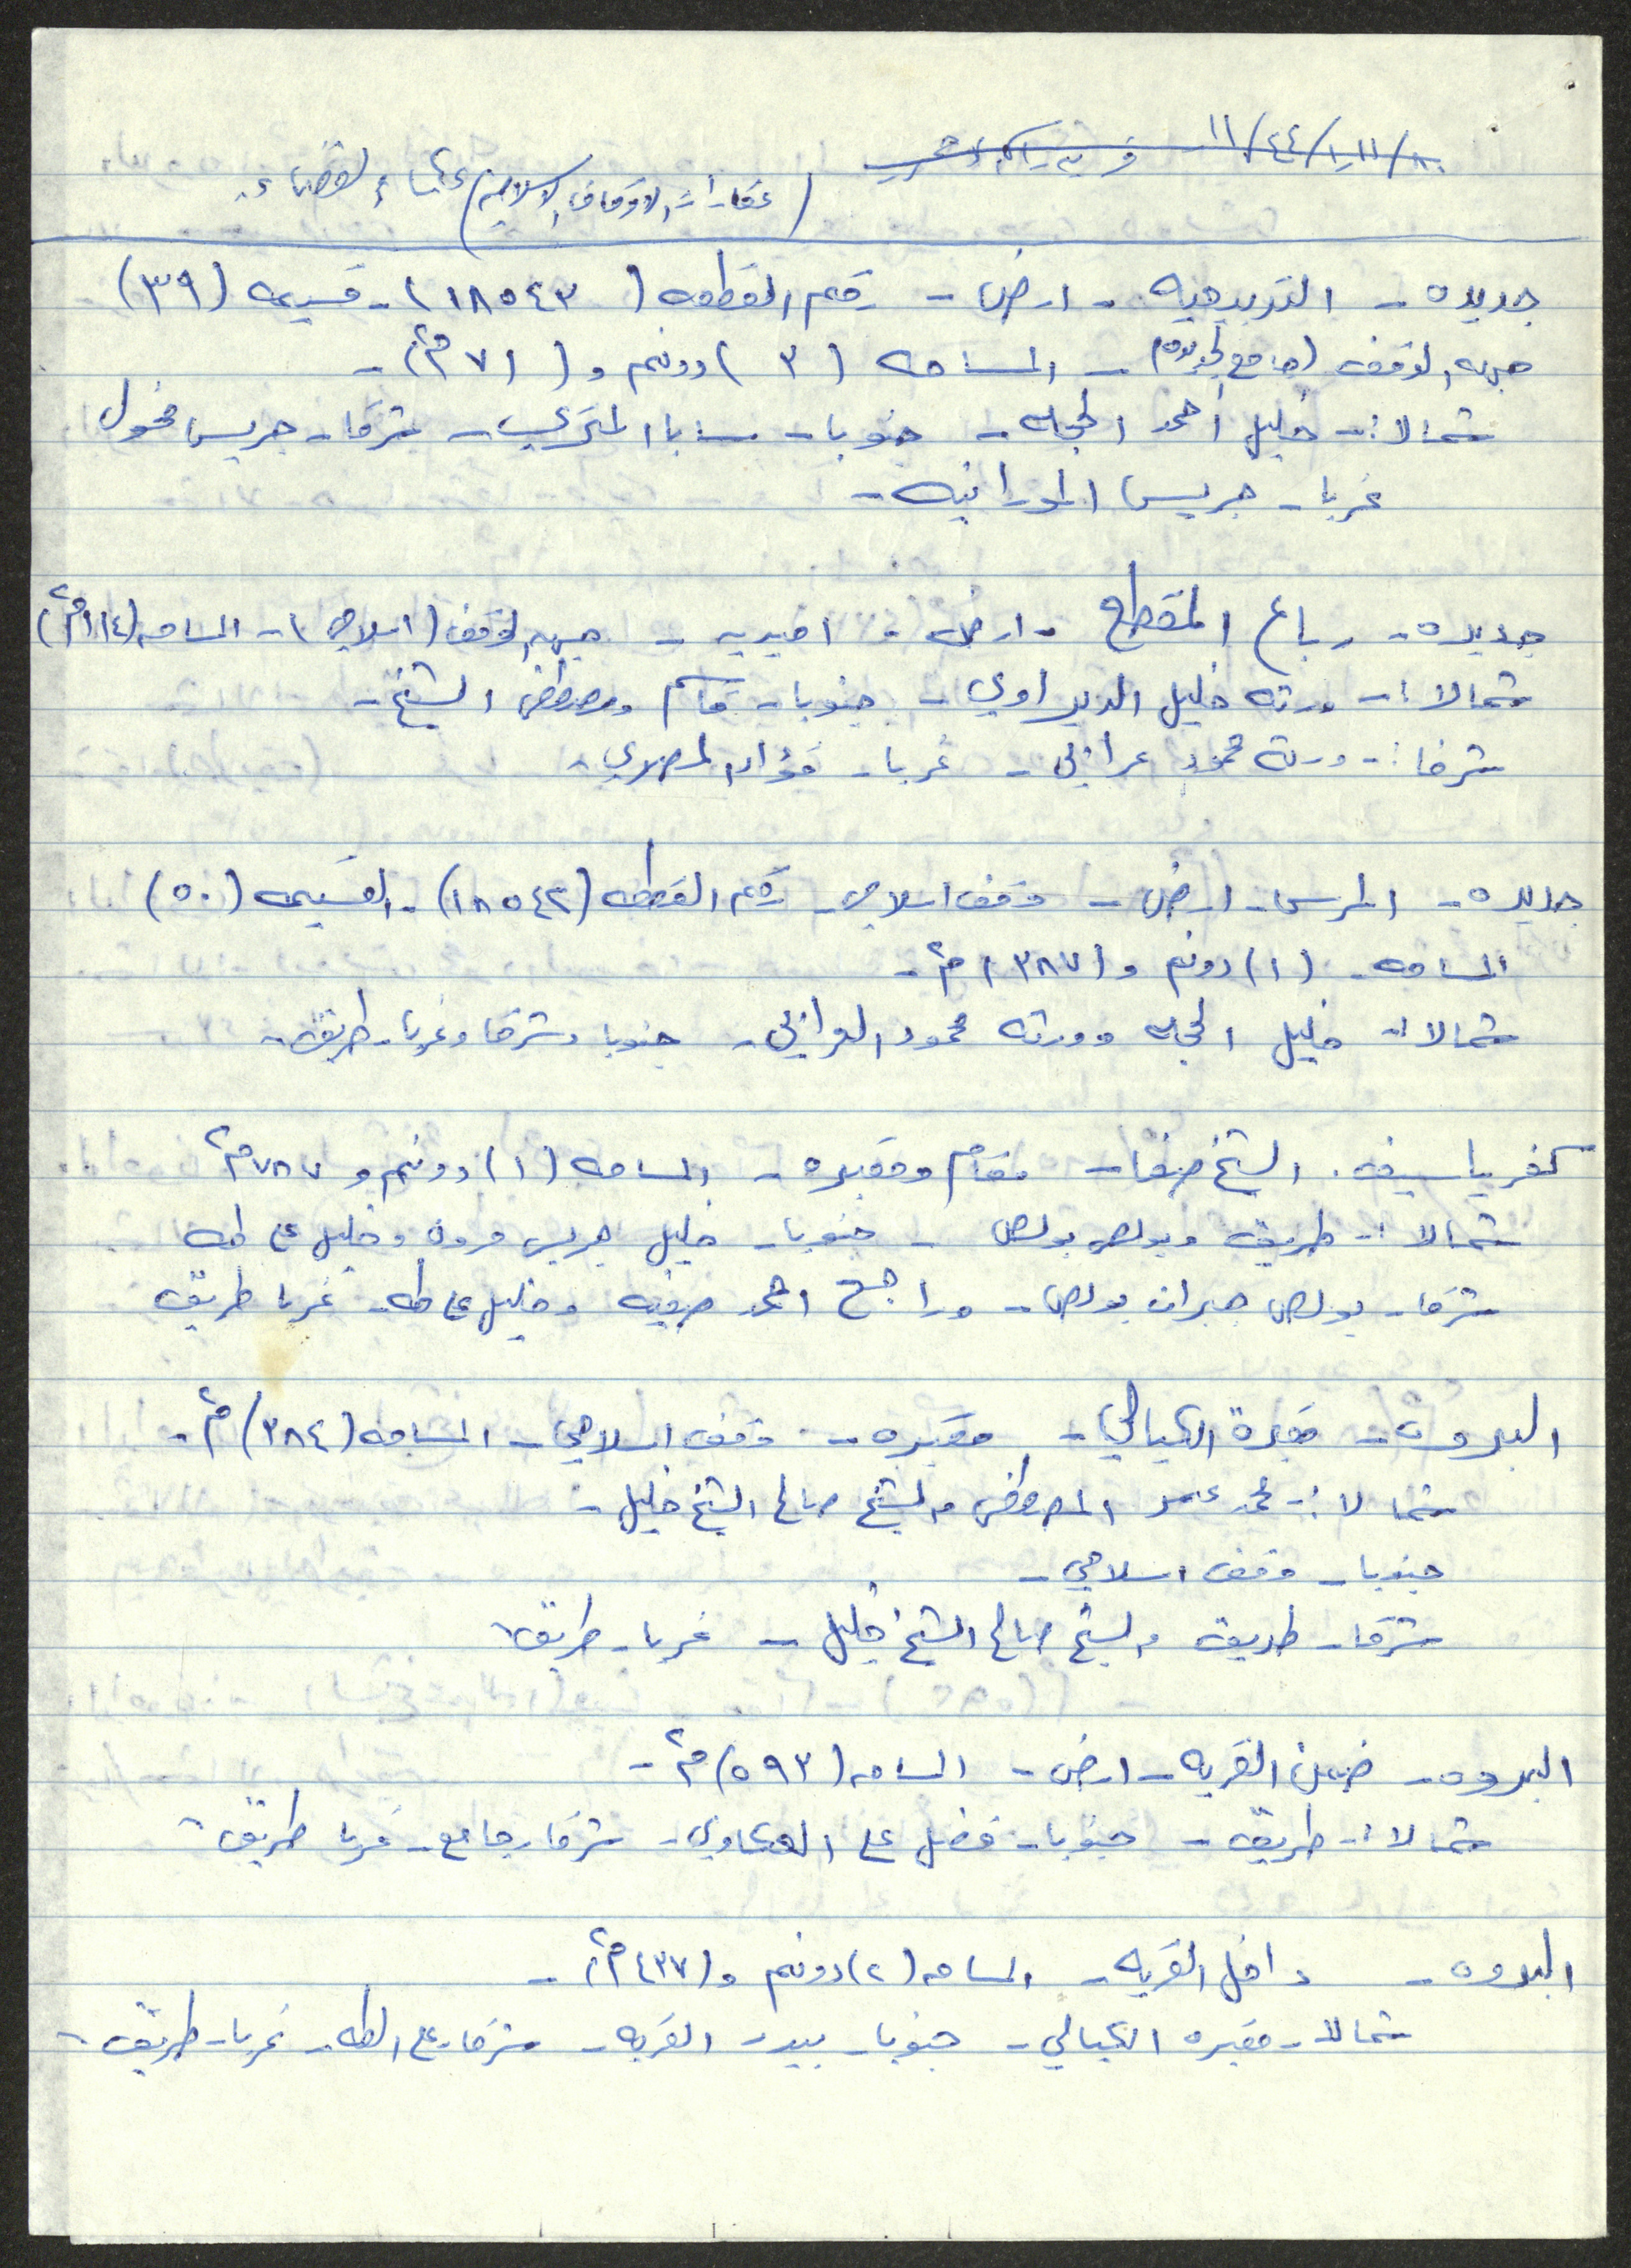 (عقارات الاوقاف الاسلاميه) عكا والقضاء
جديده - - ارض - رقم القطعه (١٨٥٤٣) - قسيمه (٣٩)
جهه الوقف (جامع الجديده) - المساحه (٣) دونم و (٧١ م٢) -
شمالا :- خليل أحمد الحجله - جنوبا - سابا - شرقا - جريس مخول
غربا - جريس
جديده - رباع المقطع - ارض - اميريه - جهه الوقف (اسلامي) - المساحه (١١٤ م٢)
شمالا :- ورثه خليل الديراوي - جنوبا - قاسم ومصطفى الشيخ -
شرقا :- ورثة محمود عرابي - غربا - فؤاد المصري -
جديده - - ارض - وقف اسلامي - رقم القطعه (١٨٥٤٢) - القسيمه (٥٠)
المساحه - (١) دونم و (٣٨٧) م٢ -
شمالا :- خليل الحجله وورثه محمود العرابي - جنوبا وشرقا وغربا - طريق -
كفر ياسيف . الشيخ - مقام ومقبره - المساحه (١) دونم و ٧٨٧ م٢
شمالا :- طريق وبولص بولص - جنوبا - خليل جريس وخليل علي طه
شرقا - بولص جبران بولص - وراجح احمد وخليل علي طه - غربا طريق
البروه - مقبرة الكيالي - مقبره - وقف اسلامي - المساحه (٣٨٤) م٢ -
شمالا :- محمد المصطفى والشيخ صالح الشيخ خليل -
جنوبا - وقف اسلامي -
شرقا - طريق والشيخ صالح الشيخ خليل - غربا - طريق
البروه - ضمن القريه - ارض - المساحه (٥٩٣) م٢ -
شمالا :- طريق - جنوبا - فضل علي العكاوي - شرقا - جامع - غربا طريق
البروه - داخل القريه - المساحه (٢) دونم و (٤٣٧ م٢) -
شمالا - مقبره الكيالي - جنوبا - بيدر القريه - شرقا - علي الطه - غربا - طريق -